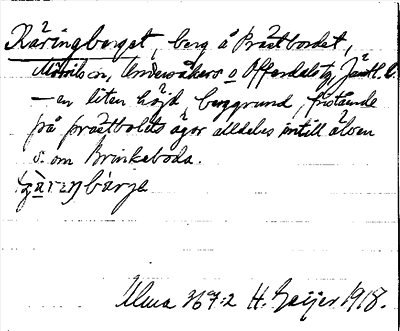 Käringberget, berg å Prästbordet,
Mörsil sn, Undersåkers o Offerdals tg, Jämtl. l.
— en liten höjd berggrund, fristående
på prästbolets ägor alldeles intill älven
s. om Brinkeboda.
Ulma 267:2 H. Geijer 1918.